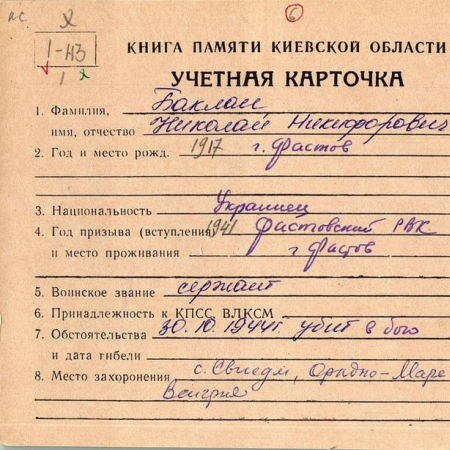 КС. 2 6
1-НЗ
1 2
КНИГА ПАМЯТИ КИЕВСКОЙ ОБЛАСТИ
УЧЕТНАЯ КАРТОЧКА
1. Фамилия, Баклан
имя, отчество Николай Никифорович
2. Год и место рожд. 1917 г. Фастов
3. Национальность Украинец
4. Год призыва (вступления) 1941 Фастовский РВК
и место проживания г. Фастов
5. Воинское звание сержант
6. Принадлежность к КПСС, ВЛКСМ
7. Обстоятельства 30.10.1944г. убит в бою
и дата гибели
8. Место захоронения с. Орадно-Маре
Венгрия